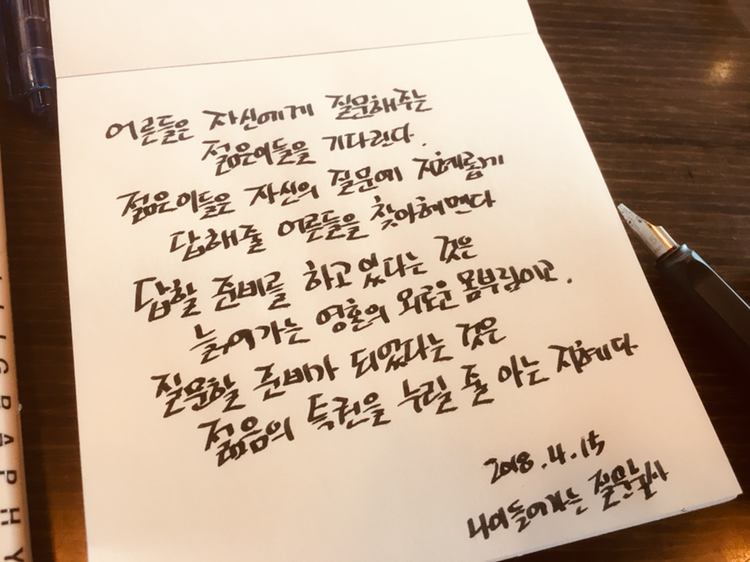 어른들은 자신에게 질문해주는
젊은이들을 기다린다.
젊은이들은 자신의 질문에 지혜롭게
답해줄 어른들을 찾아헤맨다
답할 준비를 하고 있다는 것은
늙어가는 영혼의 외로운 몸부림이고,
질문할 준비가 되었다는 것은
젊음의 특권을 누릴 줄 아는 지혜다
2018.4.15
나이들어가는 질문술사
IGRAPHY